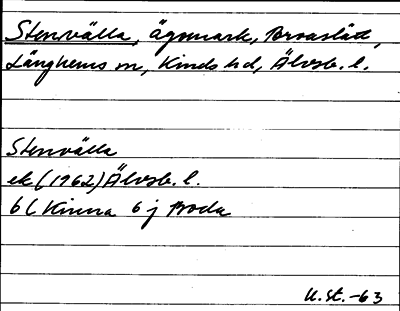 Stenvälla, Ägomark, Broaslätt,
Länghems sn, Kinds hd, Älvsb. l.
Stenvälla
ek (1962) Älvsb. l.
6 C Kinna 6 j Boda
U.St.-63